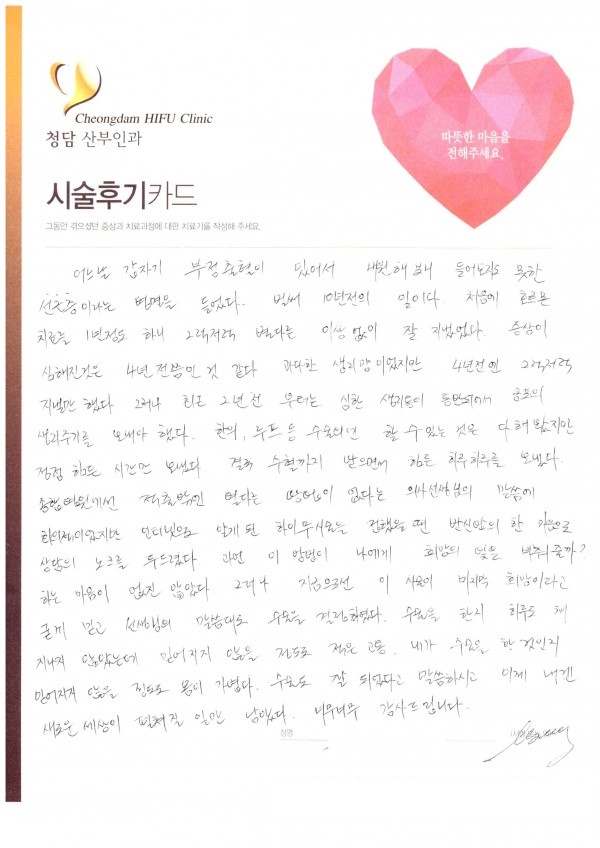 Cheongdam HIFU Clinic
청담 산부인과
따뜻한 마음을
전해주세요.
시술후기카드
그동안 겪으셨던 증상과 치료과정에 대한 치료기를 작성해 주세요.
어느날 갑자기 부정출혈이 있어서 내원해 보니 들어보지도 못한
선근증이라는 병명을 들었다. 벌써 10년전의 일이다 처음에 호르몬
치료를 1년정도 하니 그럭저럭 별다른 이상 없이 잘 지냈었다. 증상이
심해진것은 4년 전쯤인 것 같다 과다한 생리량이었지만 4년전엔 그럭저럭
지낼만 했다 그러나 최근 2년 전 부터는 심한 생리통이 동반되어서 공포의
생리주기를 보내야 했다. 한의, 루프 등 수술외엔 할 수 있는 것은 다 해 봤지만
점점 힘든 시간만 보냈다 결국 수혈까지 받으면서 힘든 하루하루를 보냈다.
종합병원에선 적출밖엔 별다른 방법이 없다는 의사선생님의 말씀에
인터넷으로 알게 된 하이푸시술을 접했을 땐 반신반의 한 마음으로
상담의 노크를 두드렸다 과연 이 방법이 나에게 희망의 빛을 비춰 줄까?
하는 마음이 없진 않았다 그러나 지금으로선 이 시술이 마지막 희망이라고
굳게 믿고 선생님의 말씀대로 수술을 결정하였다. 수술을 한지 하루도 채
지나지 않았는데 믿어지지 않을 정도로 적은 고통. 내가 수술을 한 것인지
믿어지지 않을 정도로 몸이 가볍다. 수술도 잘 되었다고 말씀하시고 이제 내겐
새로운 세상이 펼쳐질 일만 남았다. 너무너무 감사드립니다.
성명